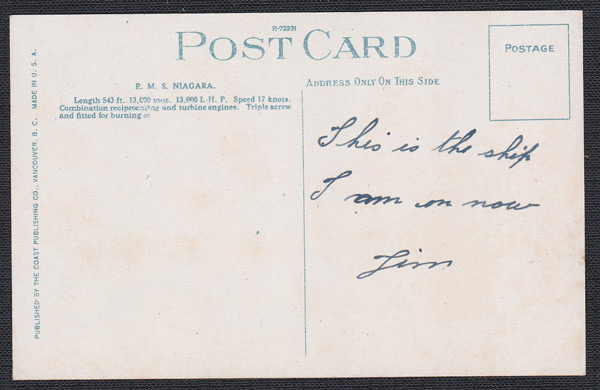 R-72931
POST CARD
POSTAGE
ADDRESS ONLY ON THIS SIDE
R. M. S. NIAGARA.
Length 543 ft. 13,000 tons. 13,000 I. H. P. Speed 17 knots.
Combination reciprocating and turbine engines. Triple screw
and fitted for burning
This is the ship
I am on now
Jim
PUBLISHED BY THE COAST PUBLISHING CO., VANCOUVER, B. C. MADE IN U. S. A.